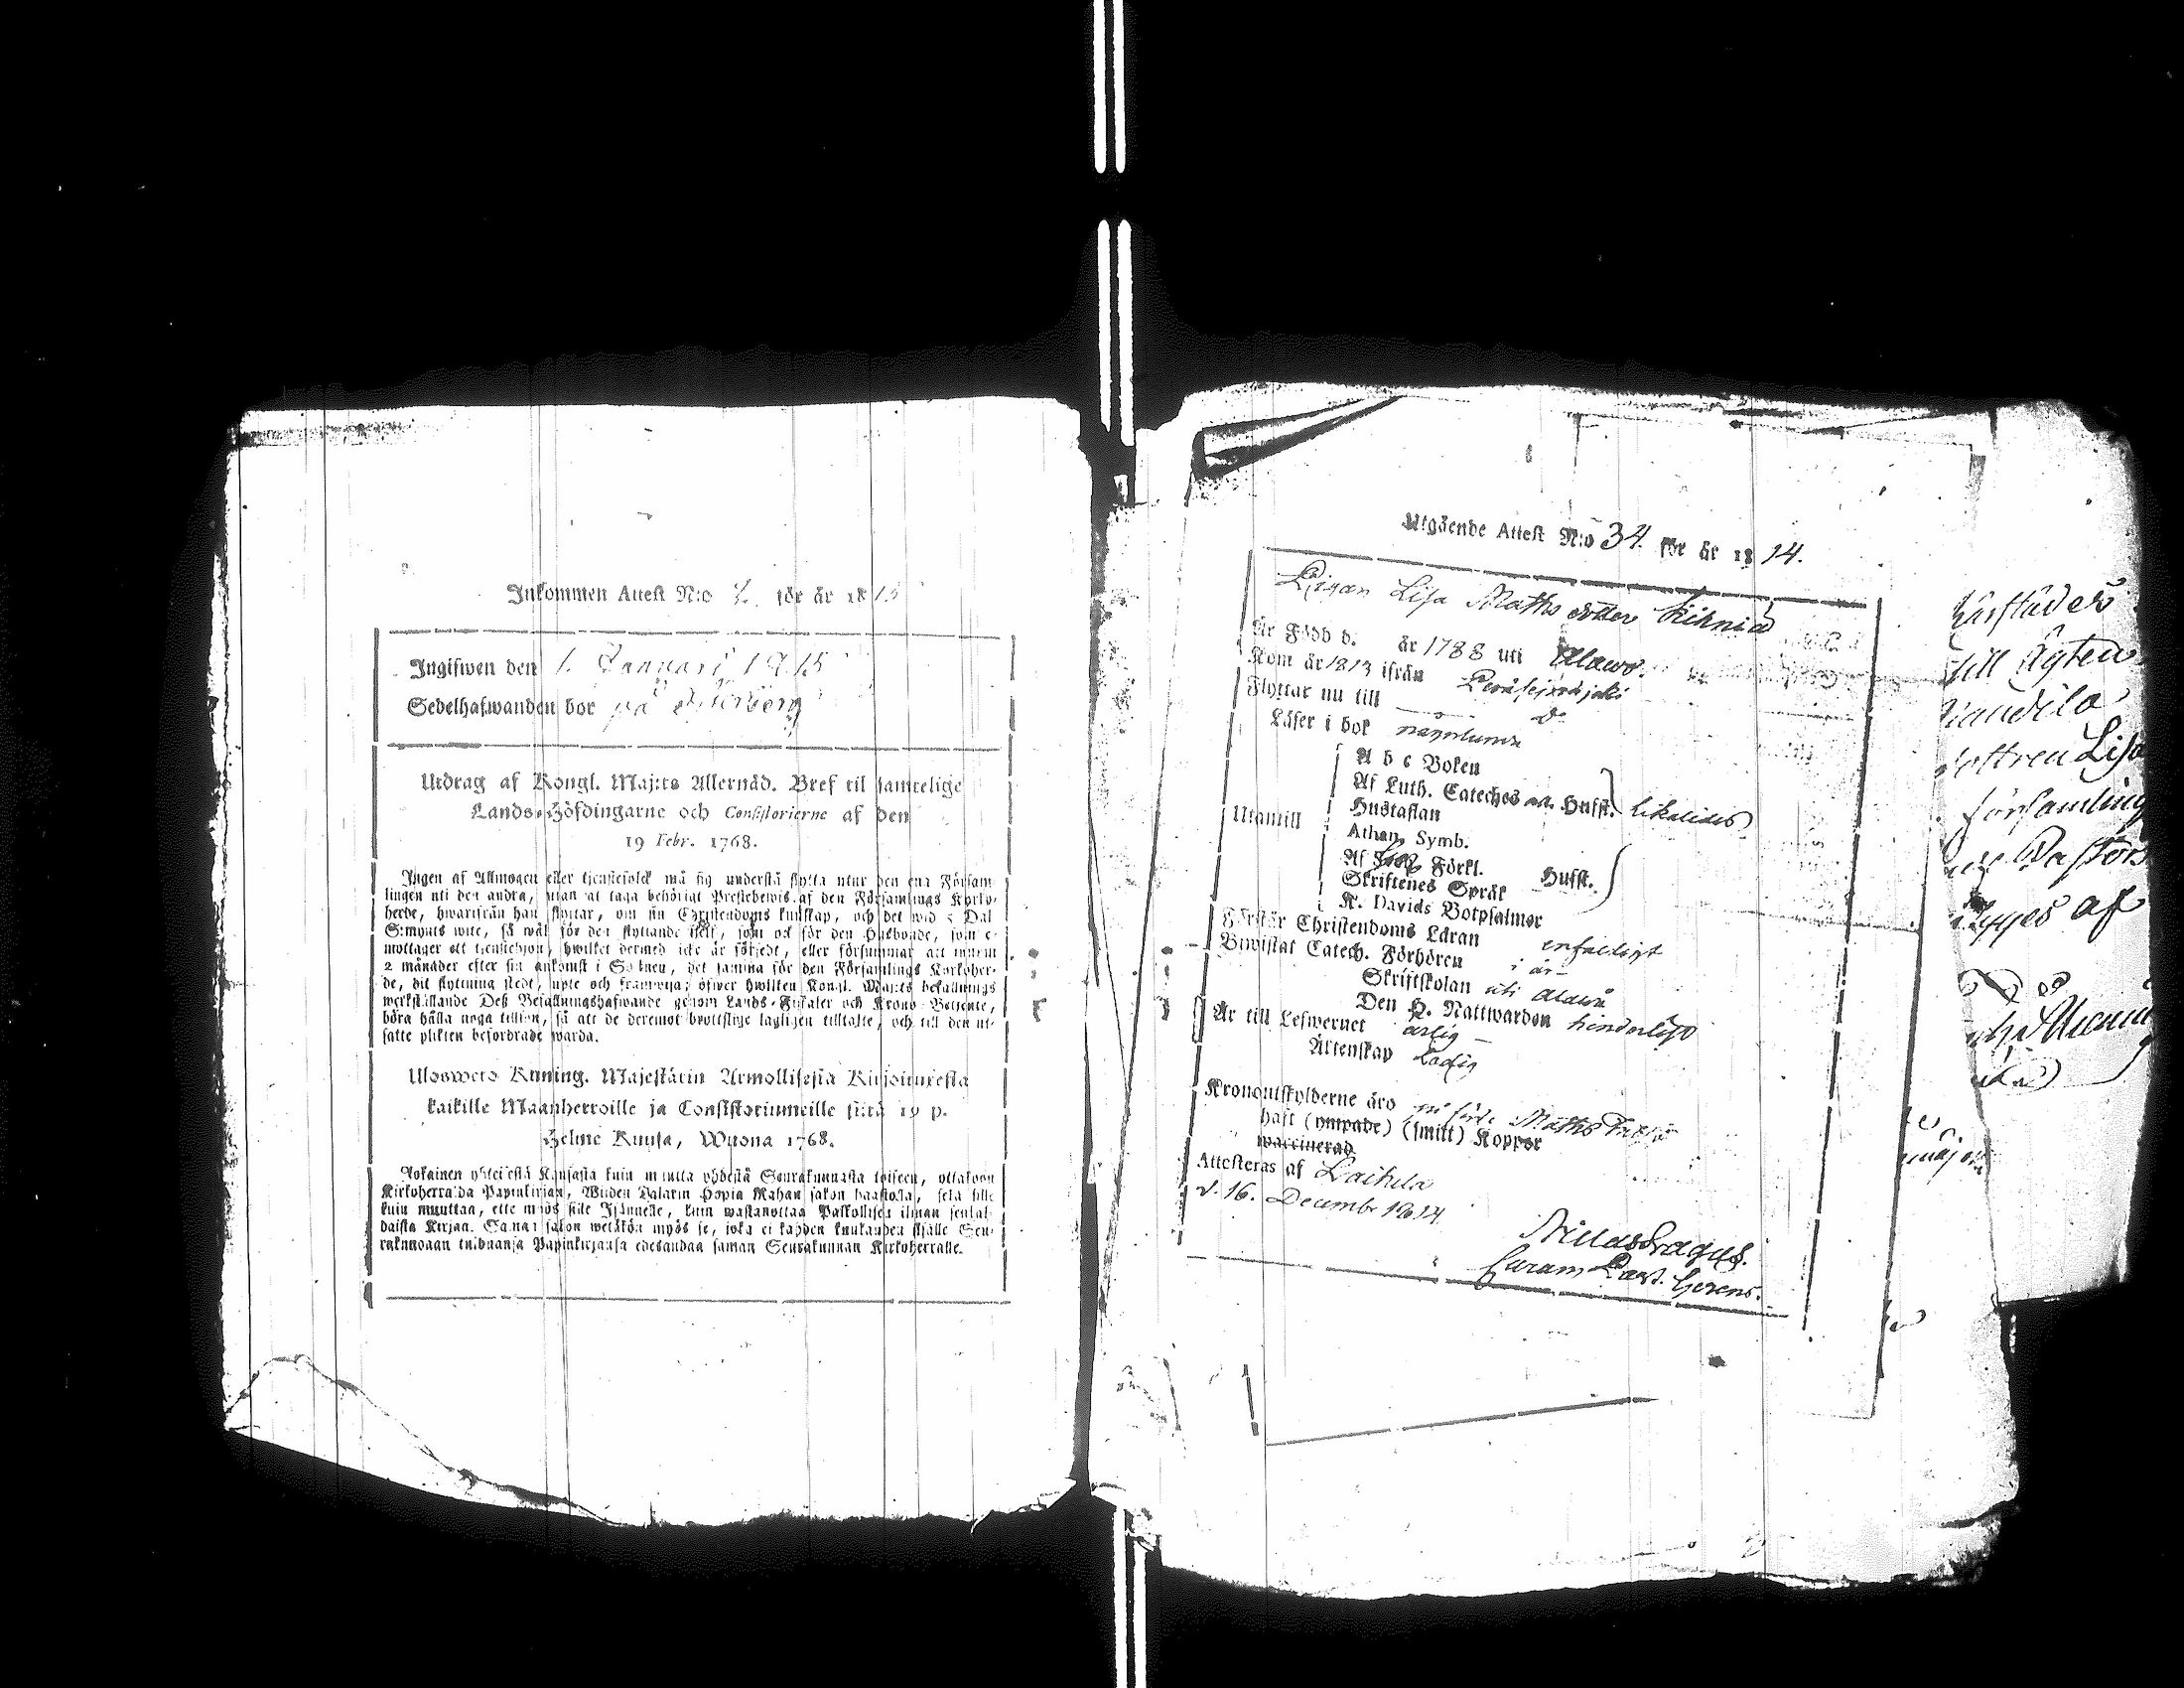 Inkommen Attest N:o 2. för år 1815
Ingifwen den 1. Januari 1815
Sedelhafwanden bor på
Utdrag af Kongl. Maj:ts Allernåd. Bref til samtelige
Lands-Höfdingarne och Consistorierne af den
19 Febr. 1768.
Ingen af Allmogen eller tjenstefolck må sig understå flytta utur den ena Försam-
lingen uti den andra, utan at taga behörigt Prestebewis af den Församlings Kyrko-
herde, hwarifrån han flyttar, om sin Christendoms kunskap, och det wid 5 Dal.
S:mynts wite, så wäl för den flyttande sielf, som ock för den Husbonde, som e-
mottager ett tjenstehjon, hwilket dermed icke är försedt, eller försummar att innom
2 månader efter sin ankomst i Soknen, det samma för den Församlings Kyrkoher-
de, dit flyttning skedt, upte och framwisa; öfwer hwilken Kongl. Maj:ts befallnings
werkställande Deß Befallningshafwande genom Lands-Fiskaler och Krono-Betjente,
böra hålla noga tillsyn, så att de deremot brottslige lagligen tilltalte, och till den ut-
satte plikten befordrade warda.
Ulosweto Kuning. Majestätin Armollisesta Kirjoituxesta
kaikille Maanherroille ja Consistoriumeille siitä 19 p.
Helme Kuusa, Wuona 1768.
Jokainen yhteisestä Kansasta kuin muutta yhdestä Seurakunnasta toiseen, ottakoon
Kirkoherralda Papinkirjan, Wiiden Dalarin Hopia Rahan sakon haastolla, sekä sille
kuin muuttaa, ette myös sille Isännelle, kuin wastanottaa Palkollisen ilman senkal-
daista Kirjaa. Saman sakon wetäkön myös se, joka ei kahden kuukauden sisälle Seu-
rakunnaan tulduansa Papinkirjansa edesandaa saman Seurakunnan Kirkoherralle.
Utgående Attest N:o 34. för år 1814.
Pigan Lisa Maths dotter Kihniä
Är Född d. år 1788 uti Alawo.
Kom år 1813 ifrån Peräseinäjoki
Flyttar nu till D:o
Läser i bok någorlunda
A b c Boken
Af Luth. Cateches Hufst.
Hustaflan
Utantill
Athan. Symb.
Af Förkl. Hufst.
Skriftenes Språk
K. Davids Botpsalmer
Förstår Christendoms Läran enfaldigt
Biwistat Catech. Förhören i år
Skriftskolan uti Alawo
Den H. Nattwarden hinderligt
Är till Lefwernet ärlig
Äktenskap Ledig
Kronoutskylderne äro
haft (ympade) (smitt) Koppor
waccinerad
Attesteras af Laihela
d. 16. Decembr 1814
härstädes
till Ägten
dottren Lisa
församling
af